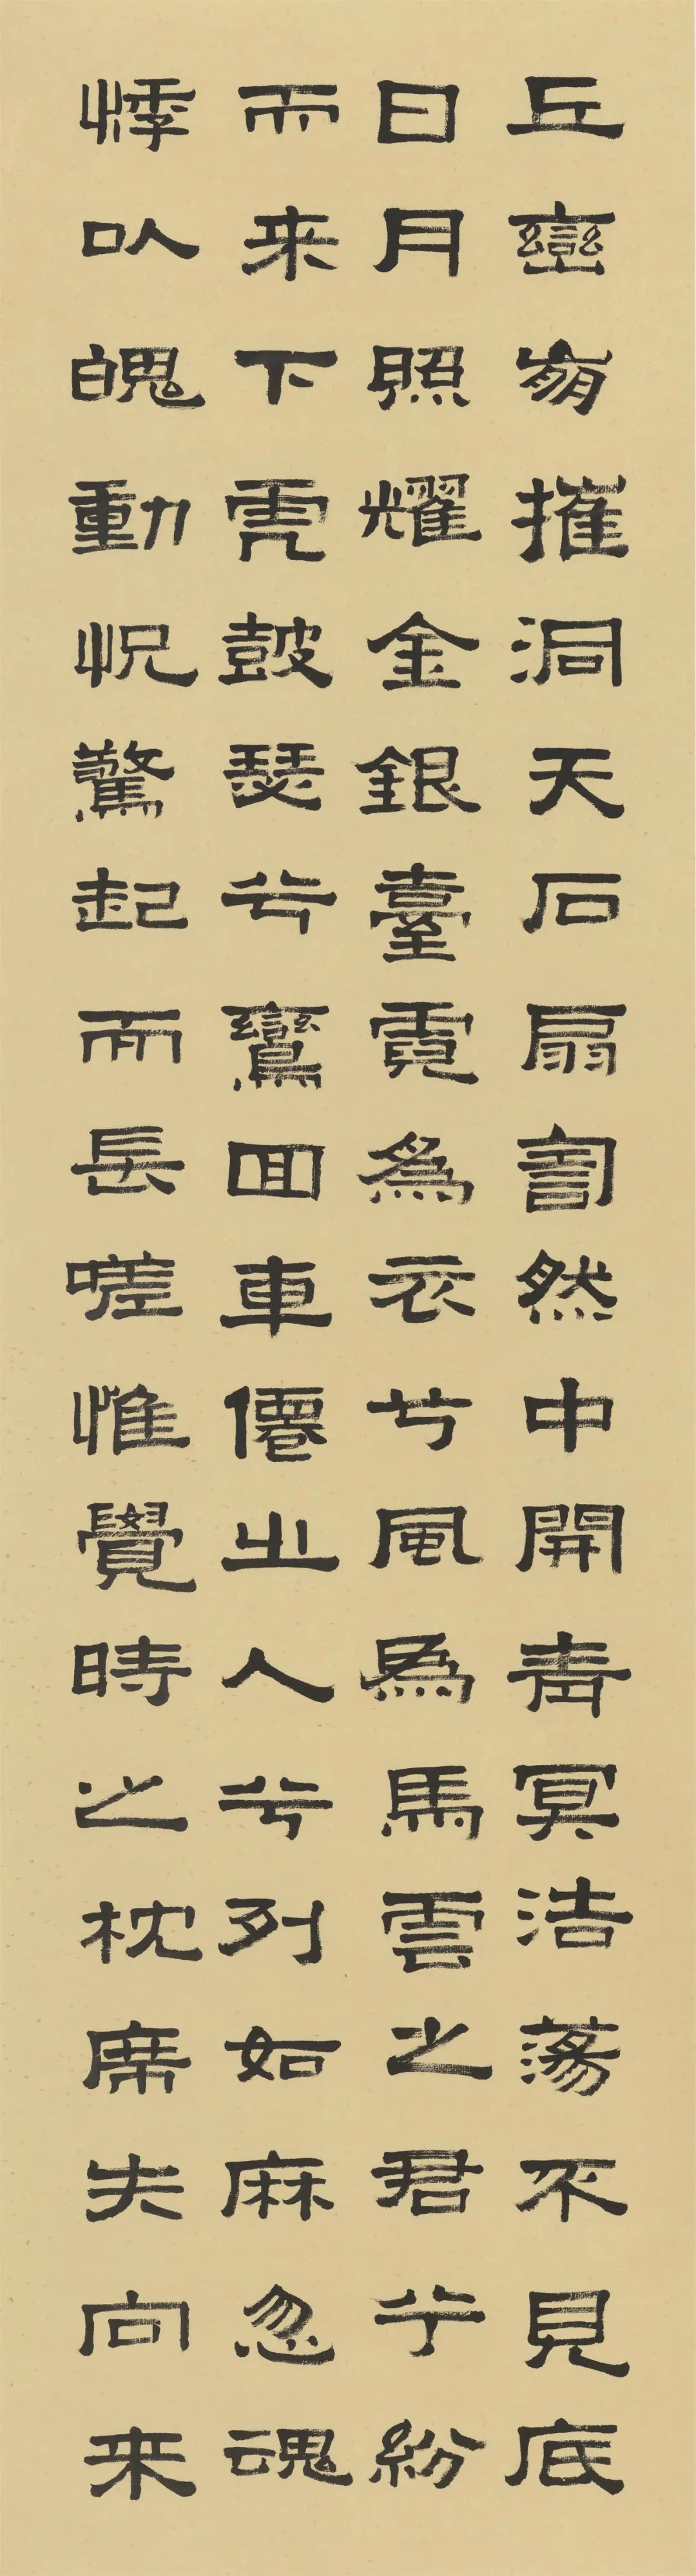 丘巒崩摧洞天石扇訇然中開青冥浩蕩不見底
日月照耀金銀臺霓爲衣兮風爲馬雲之君兮紛
而来下虎鼓瑟兮鸞回車僊之人兮列如麻忽魂
悸以魄動怳驚起而長嗟惟覺時之枕席失向来